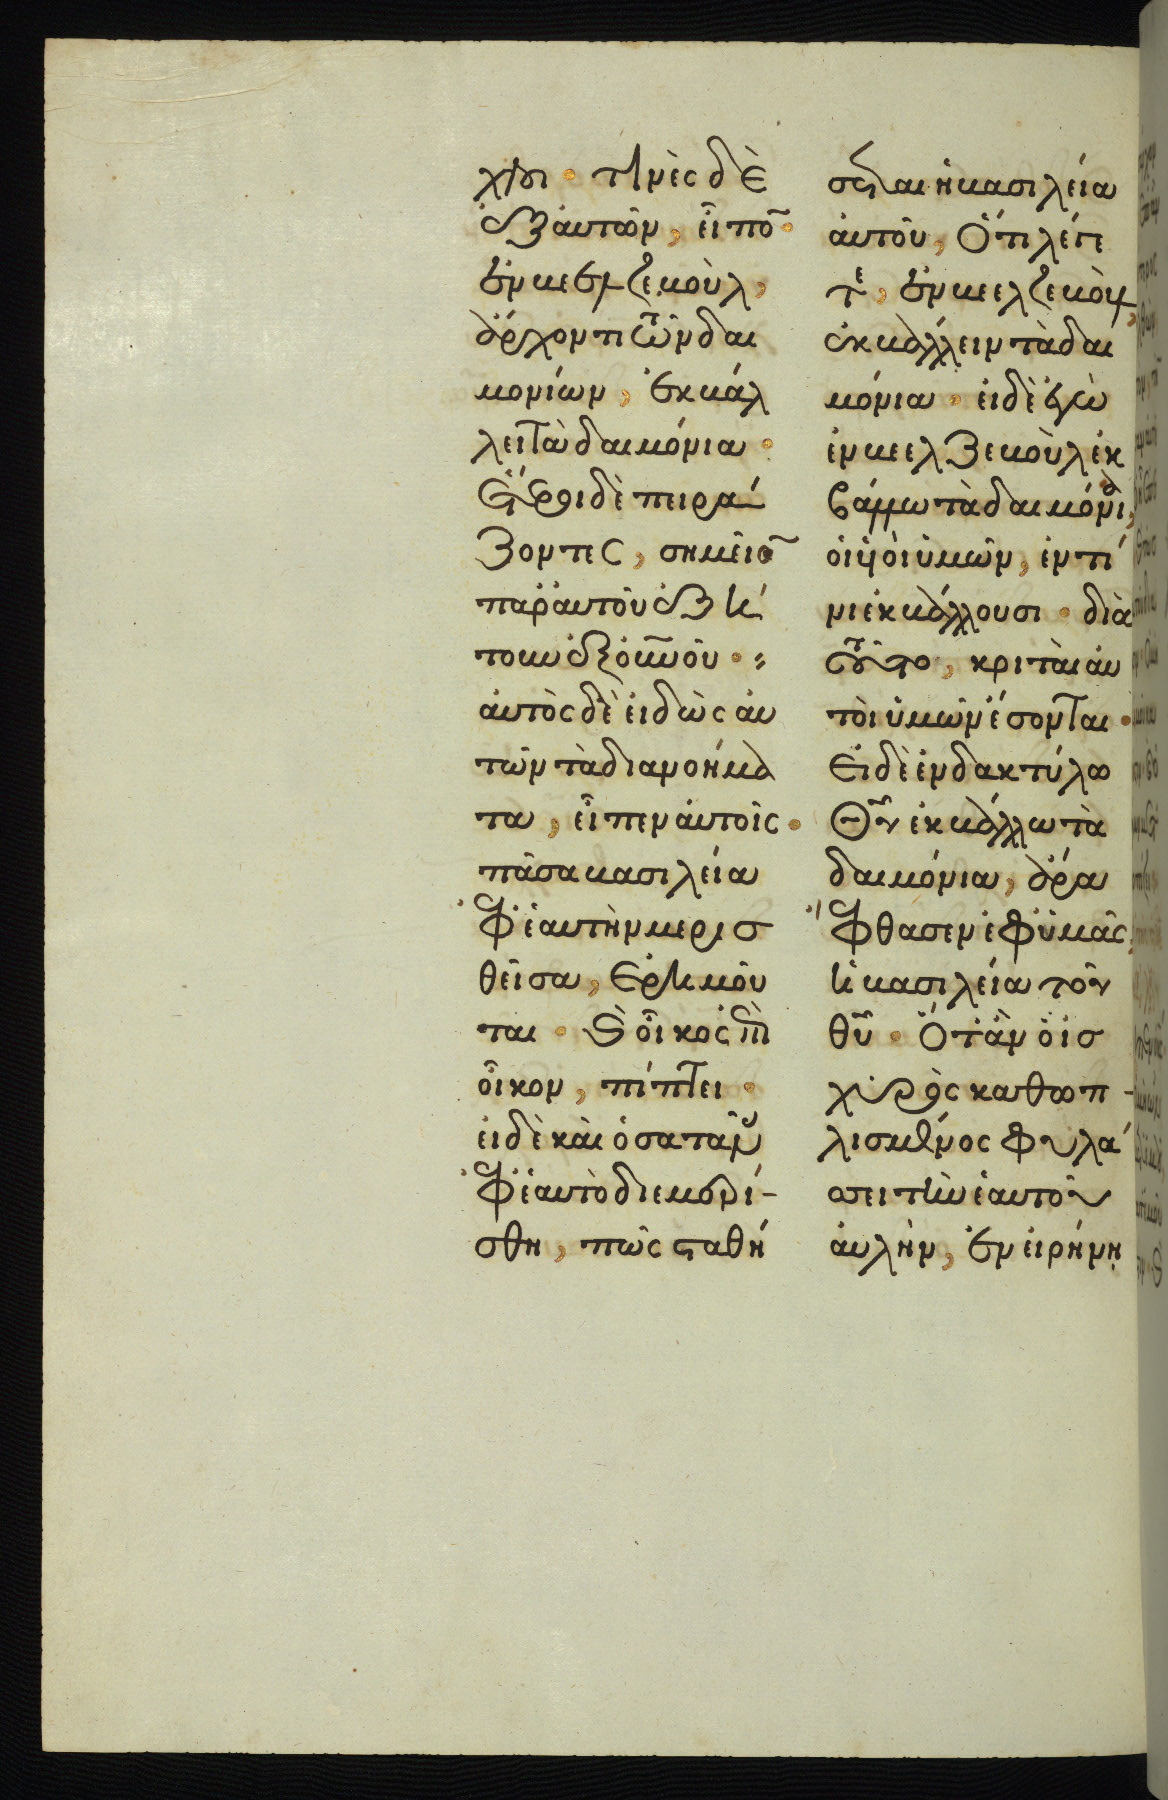 χλοι · τινὲς δὲ
ἐξ αὐτῶν, εἶπο̅ ·
ἐν βεελζεβοὺλ,
ἄρχοντι τῶν δαι
μονίων, ἐκβάλ
λει τὰ δαιμόνια ·
ἕτεροι δὲ πειρά
ζοντες, σημεῖο̅
παρ' αὐτοῦ ἐζή
τουν ἐξ οὐ̅νοῦ ·
αὐτὸς δὲ εἰδὼς αὐ
τῶν τὰ διανοήμα
τα, εἶπεν αὐτοῖς ·
πᾶσα βασιλεία
ἐφ' ἑαυτὴν μερισ
θεῖσα, ἐρημοῦ
ται · καὶ οἶκος ἐπὶ
οἶκον, πίπτει ·
εἰ δὲ καὶ ὁ σατανᾶς
ἐφ' ἑαυτὸ διεμερί-
σθη, πῶς σταθή
σεται ἡ βασιλεία
αὐτοῦ, Ὅτι λέγε
τε, ἐν βεελζεβοὺλ
ἐκβάλλειν τὰ δαι
μόνια · εἰ δὲ ἐγὼ
ἐν βεελζεβοὺλ ἐκ
βάλλω τὰ δαιμόνια,
οἱ ὑοὶ ὑμῶν, ἐν τί
νι ἐκβάλλουσι · διὰ
τοῦτο, κριταὶ αὐ
τοὶ ὑμῶν ἔσονται ·
Εἰ δὲ ἐν δακτύλω
Θῦ ἐκβάλλω τὰ
δαιμόνια, ἄρα
ἔφθασεν ἐφ' ὑμᾶς
ἡ βασιλεία τοῦ
θῦ · Ὅταν ὁ ἰσ
χυρὸς καθωπ-
λισμένος φυλά
σσει τὴν ἑαυτοῦ
αὐλὴν, ἐν εἰρήνη